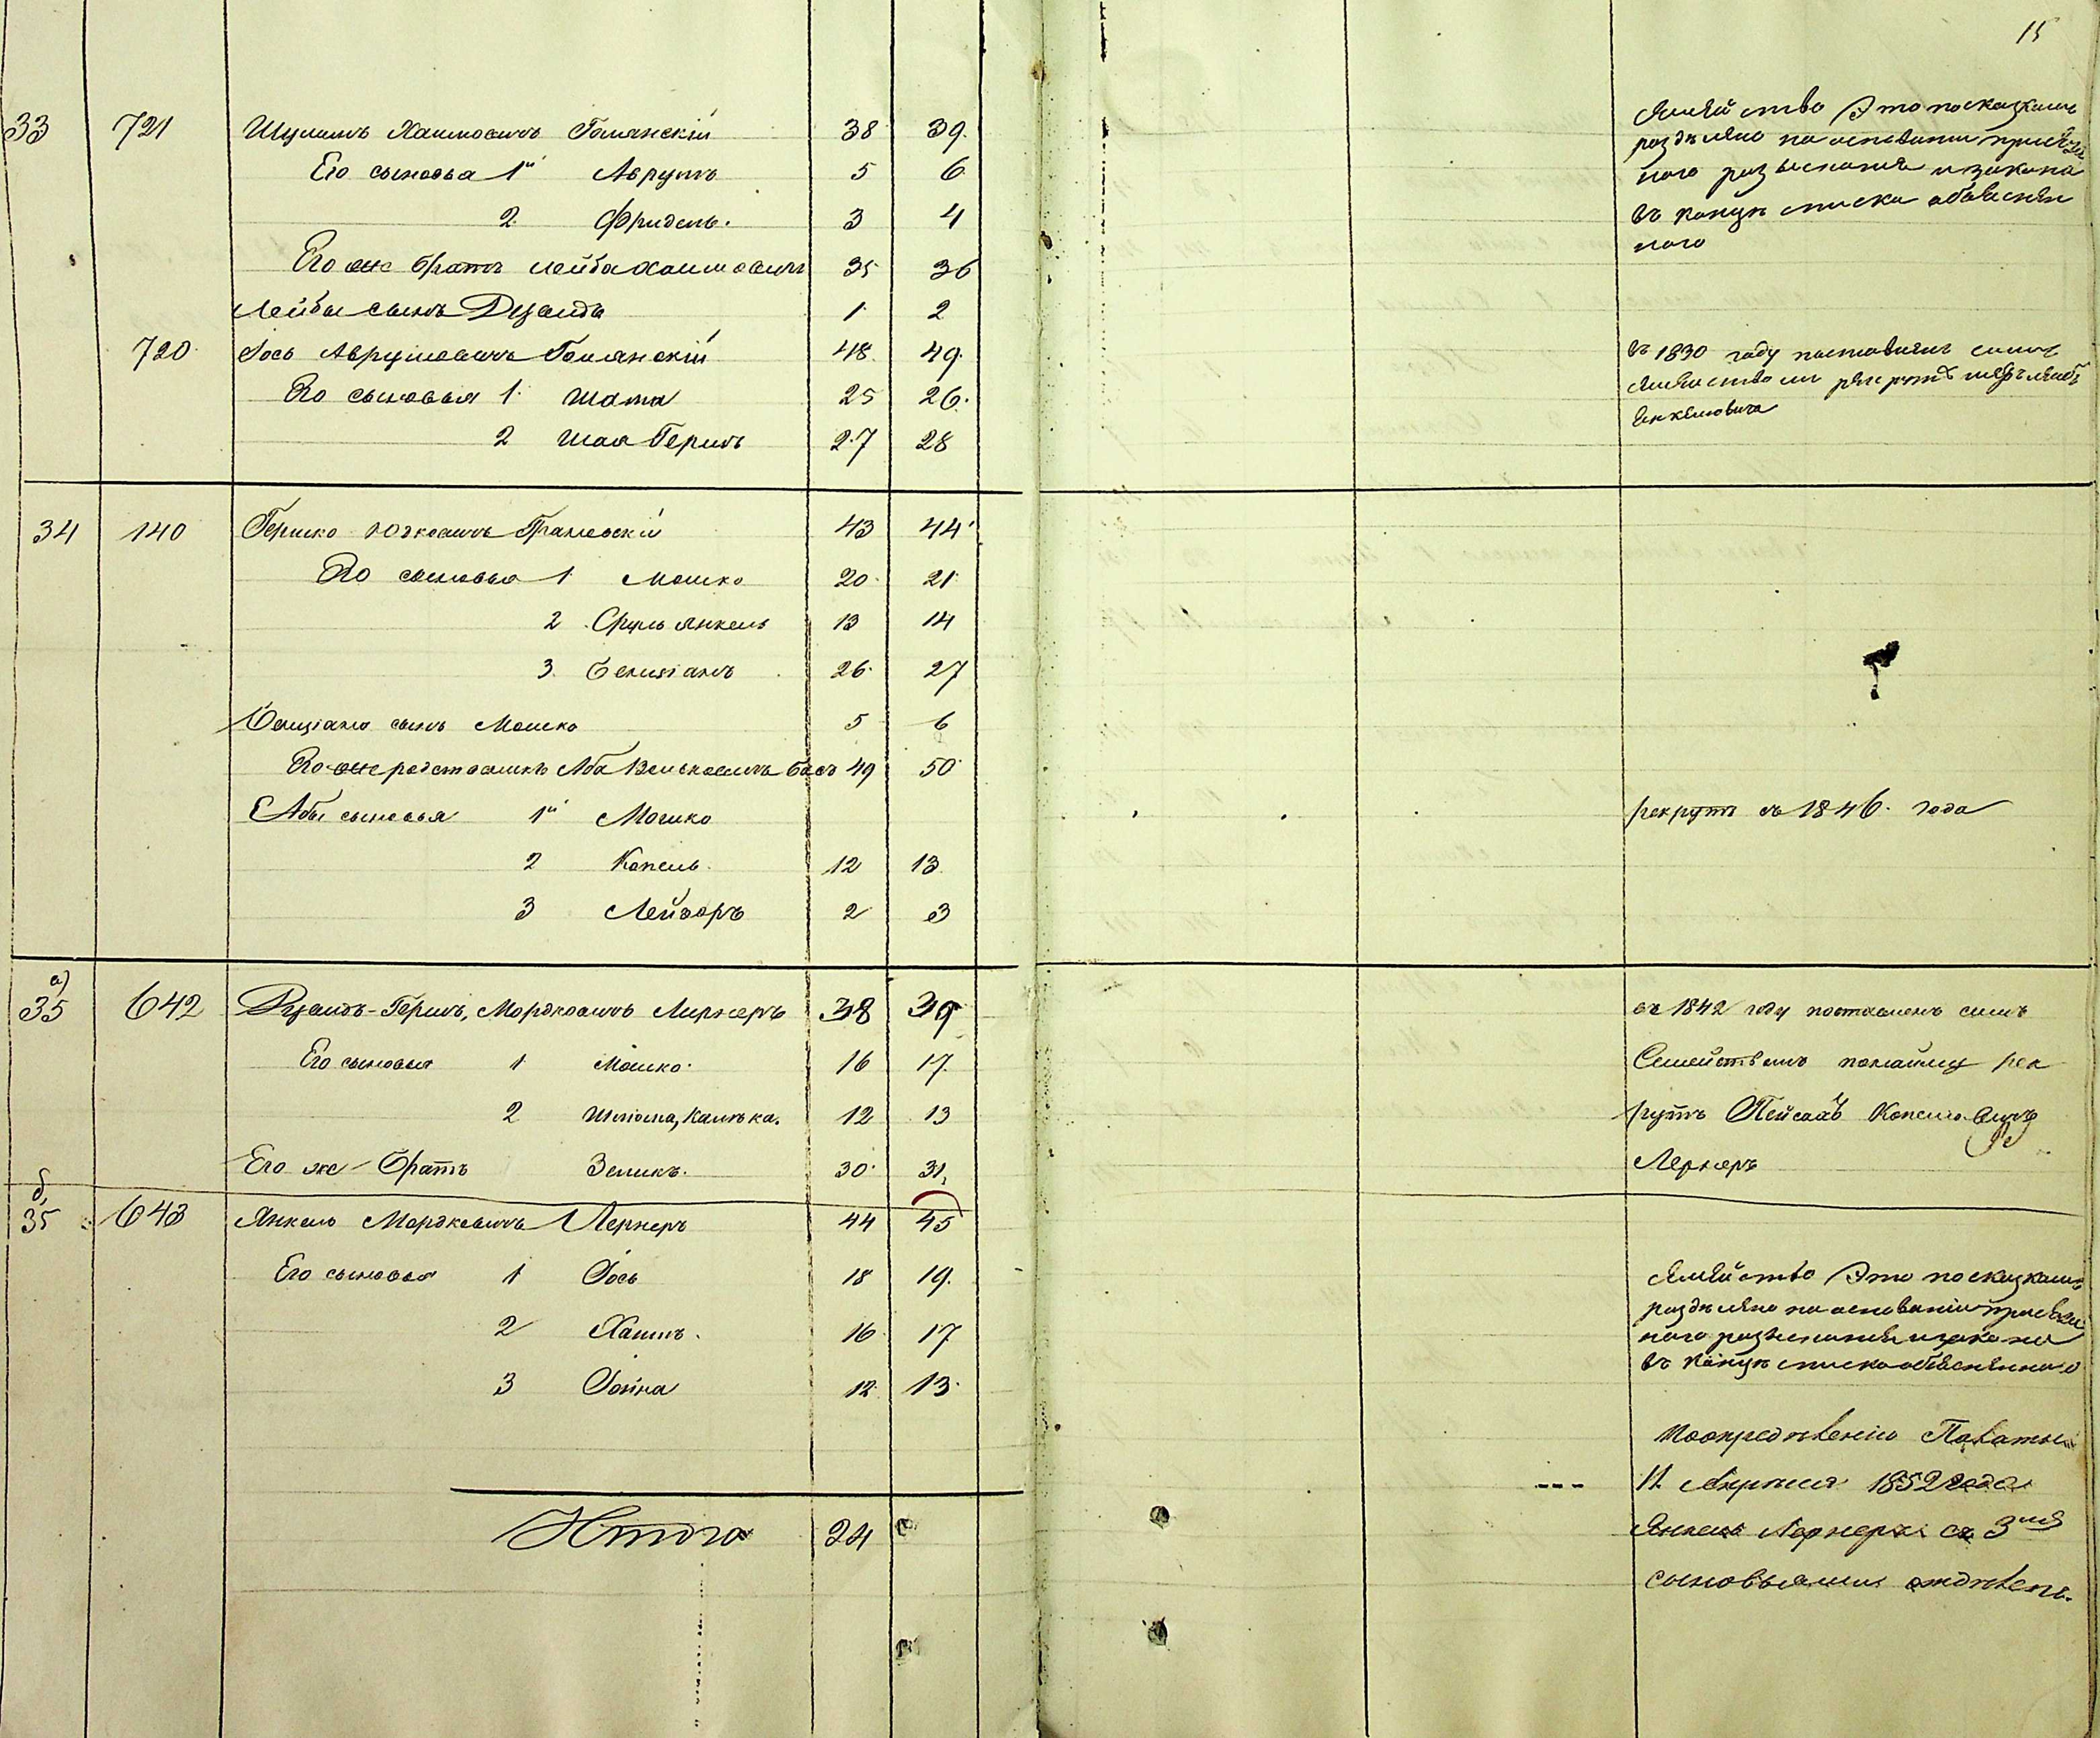 15
33 721 Шулимъ Хаимовичъ Голянскій 38 39
Его сыновья 1й Аврумъ 5 6
2 Фридель. 3 4
Его же братъ Лейба Хаимовичъ 35 36
Лейбы сынъ Дувидъ 1 2
720 Іось Аврумовичъ Голянскій 48 49
Его сыновья 1. Мата 25 26.
2 Шая Гершъ 27 28
Семейство Это по сказкамъ
раздѣлено на основании
ного разысканія и закона
въ концѣ списка обьяснен
ного
въ 1830 году поставленъ симъ
семействомъ рекрутъ
Янкелевича
34 140 Гершко Юзковичъ 43 44
Его сыновья 1 Мошко 20 21
2 Сруль Янкель 13 14
3 Бенціанъ 26 27
Бенціана сынъ Мошко 5 6
Его же родственикъ Аба Вольковичъ Басъ 49 50
Абы сыновья 1й Мошко рекрутъ съ 1846. года
2 Копель 12 13
3 Лейзоръ 2 3
а)
35 642 Дувидъ-Гершъ, Мордковичъ Лернеръ 38 39
Его сыновья 1 Мошко 16 17
2 Шлома, Калѣка. 12 13
Его же Братъ Зеликъ. 30 31,
въ 1842 году поставленъ симъ
Семействомъ понайму рек
рутъ Пейсахъ Копелевичъ
Лернеръ
б,
35 643 Янкель Мордковичъ Лернеръ 44 45
Его сыновья 1 Іось 18 19.
2 Хаимъ. 16 17
3 Іойна 12 13
Семейство Это по сказкамъ
раздѣлено на основаніи
ного разысканія и закона
въ концѣ списка обьясненнаго
По опредѣленію Палаты
11 Апрѣля 1852 года
Янкель Лернеръ съ 3мя
сыновьями отдѣленъ.
Итого 24